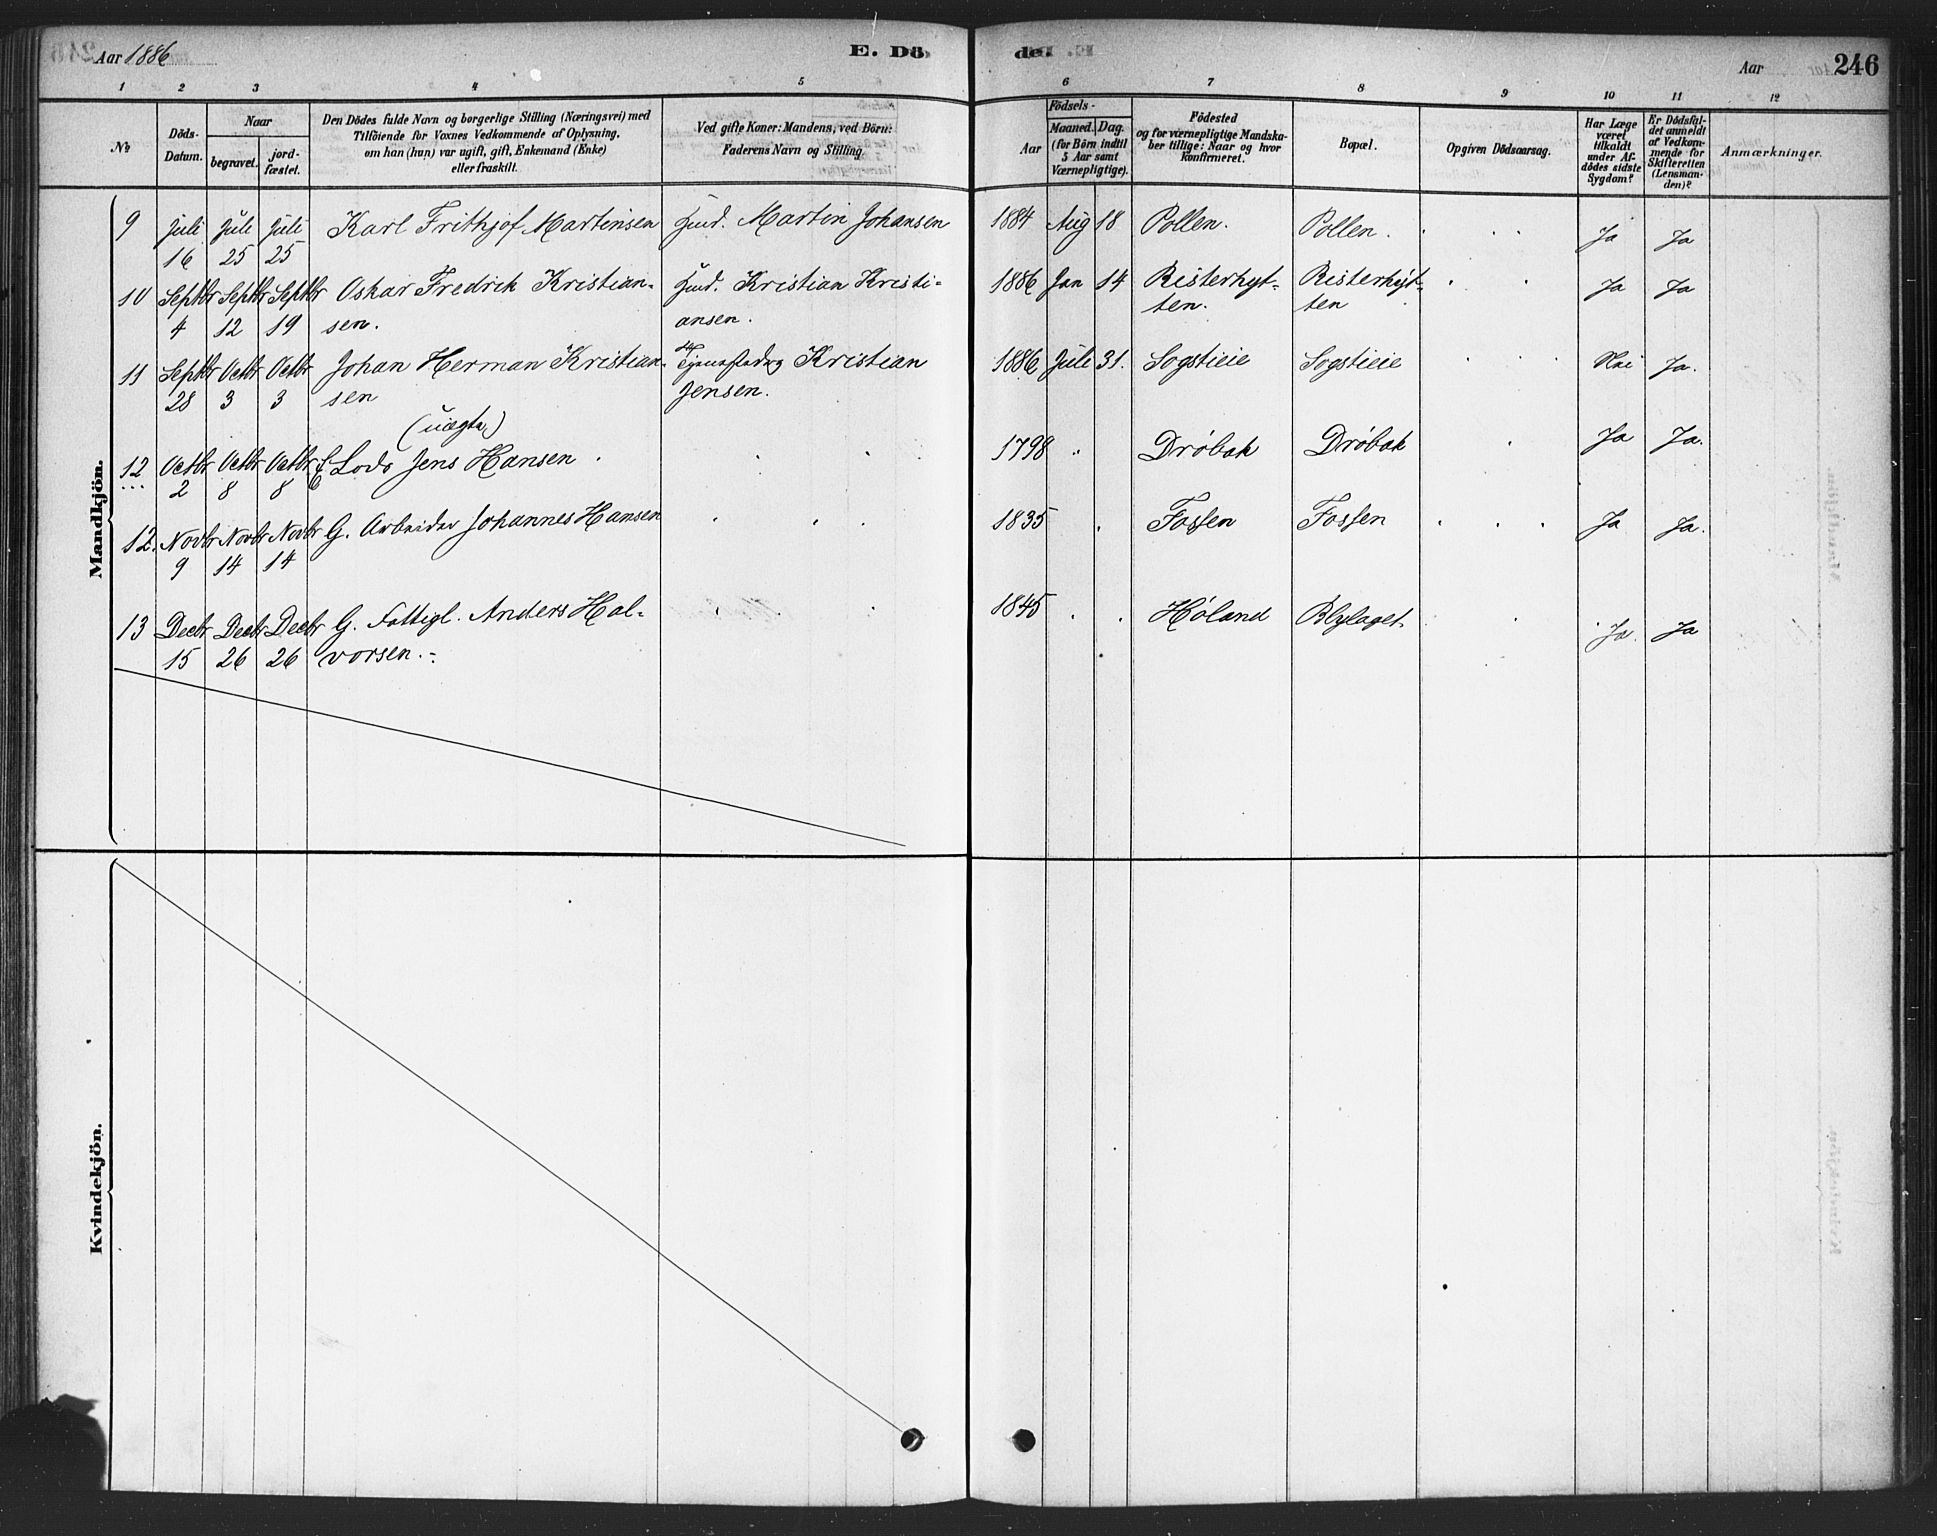 Aar 1886 E. Dö de. Aar 246
1 2 3 4 5 6 7 8 9 10 11 12
No
Döds-
Datum.
Naar
begravet.
jord-
fæstet.
Den Dödes fulde Navn og borgerlige Stilling (Næringsvei) med
Tilföiende for Voxnes Vedkommende af Oplysning,
om han (hun) var ugift, gift, Enkemand (Enke)
eller fraskilt.
Ved gifte Koner: Mandens, ved Börn:
Faderens Navn og Stilling.
Födsels-
Aar
Maaned. Dag.
(for Börn indtil
5 Aar samt
Værnepligtige).
Födested
og for værnepligtige Mandska-
ber tillige: Naar og hvor
konfirmeret.
Bopæl.
Opgiven Dödsaarsag.
Har Læge
været
tilkaldt
under Af-
dödes sidste
Sygdom?
Er Dödsfal-
det anmeldt
af Vedkom-
mende for
Skifteretten
(Lensman-
den)?
Anmærkninger.
Mandkjön.
9 Juli Juli Juli Karl Frithjof Martinsen Gmd. Martin Johansen 1884 Aug 18 Pollen. Pollen. Ja Ja
16 25 25
10 Septbr Septbr Septbr Oskar Fredrik Kristian- Gmd. Kristian Kristi- 1886 Jan 14 Risterhyt- Risterhyt- Ja Ja
4 12 19 sen. ansen. ten. ten
11 Septbr Octbr Octbr Johan Herman Kristian- Kristian 1886 Juli 31. Sogstieie Sogstieie Nei Ja.
28 3 3 sen Jensen.
(uægte)
12 Octbr Octbr Octbr E. Lods Jens Hansen. 1798 Drøbak Drøbak Ja Ja.
2 8 8
12. Novbr Novbr Novbr G. Arbeider Johannes Hansen 1835 Fossen Fossen Ja Ja.
9 14 14
13 Decbr Decbr Decbr G. Fattigl. Anders Hal- 1845 Høland Blylaget. Ja. Ja
15 26 26 vorsen.
Kvindekjön.